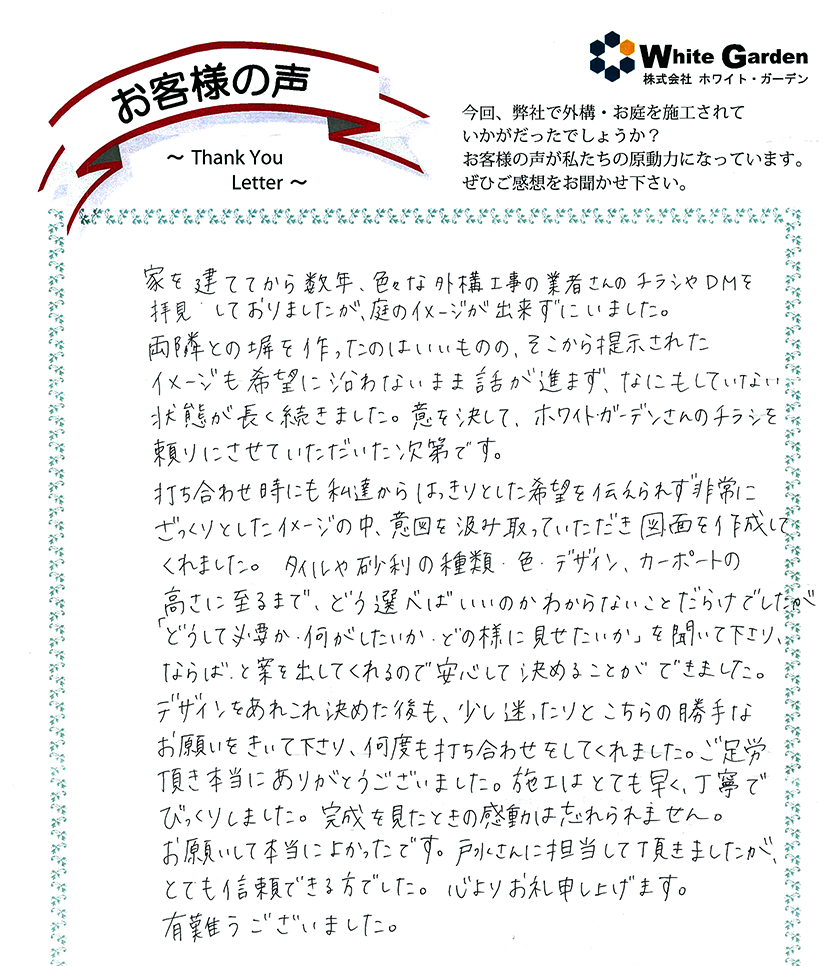 お客様の声
～ Thank You
Letter ～
White Garden
株式会社 ホワイト・ガーデン
今回、弊社で外構・お庭を施工されて
いかがだったでしょうか？
お客様の声が私たちの原動力になっています。
ぜひご感想をお聞かせ下さい。
家を建ててから数年、色々な外構工事の業者さんのチラシやDMを
拝見しておりましたが、庭のイメージが出来ずにいました。
両隣との塀を作ったのはいいものの、そこから提示された
イメージも希望に沿わないまま話が進まず、なにもしていない
状態が長く続きました。意を決して、ホワイトガーデンさんのチラシを
頼りにさせていただいた次第です。
打ち合わせ時にも私達からはっきりとした希望を伝えられず非常に
ざっくりとしたイメージの中、意図を汲み取っていただき図面を作成して
くれました。タイルや砂利の種類・色・デザイン、カーポートの
高さに至るまで、どう選べばいいのかわからないことだらけでしたが
「どうして必要か・何がしたいか・どの様に見せたいか」を聞いて下さり、
ならば、と案を出してくれるので安心して決めることができました。
デザインをあれこれ決めた後も、少し迷ったりとこちらの勝手な
お願いをきいて下さり、何度も打ち合わせをしてくれました。ご足労
頂き本当にありがとうございました。施工はとても早く、丁寧で
びっくりしました。完成を見たときの感動は忘れられません。
お願いして本当によかったです。戸水さんに担当して頂きましたが、
とても信頼できる方でした。心よりお礼申し上げます。
有難うございました。